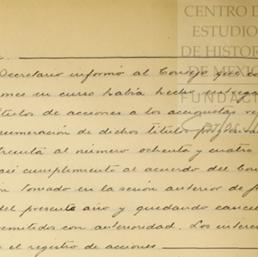 CENTRO D
ESTUDIO
DE HISTOR
DE MEXIC
FUNDACIÓ
Secretario informó al Consejo que co
ones en curso había hecho entrega
títulos de acciones a los accionistas re
numeración de dichos títulos
treinta al número ochenta y cuatro
asi cumplimiento al acuerdo del Con
ón tomado en la sesión anterior de f
del presente año y quedando cance
emitidos con anterioridad. Los intere
n el registro de acciones